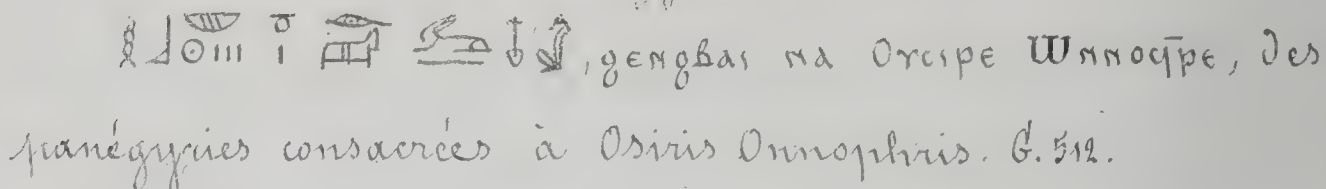 , ϩⲉⲛϩⲃⲁⲓ ⲛⲁ Ⲟⲩⲥⲓⲣⲉ Ⲱⲛⲛⲟϥⲣ̄ⲉ, des
panégyries consacrées à Osiris Onnophris. G. 512.